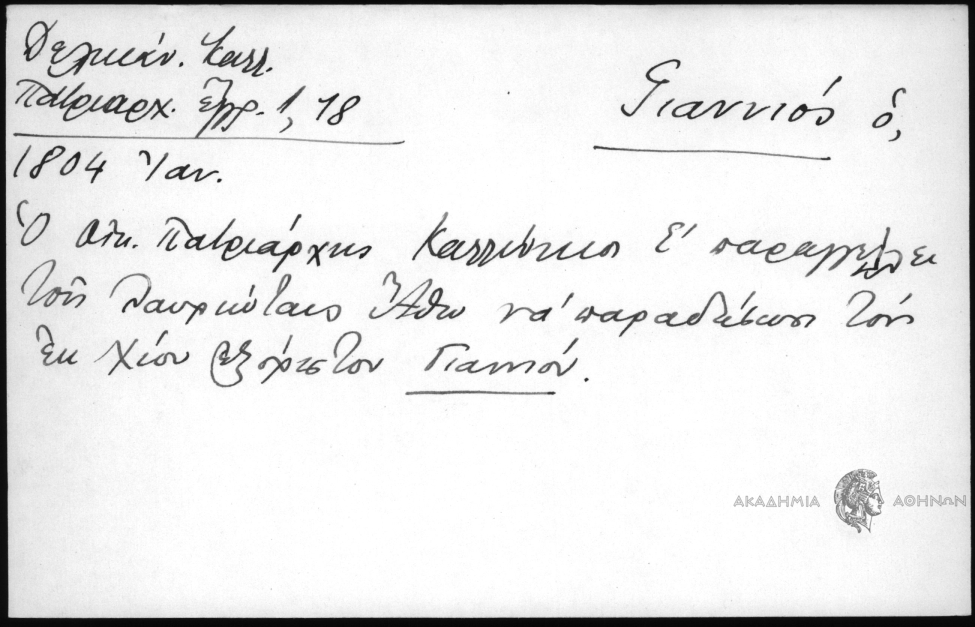 Δελικάν. Καλλ.
Πατριαρχ. ἔγγρ. 1, 18
Γιαννιός ὁ,
1804 Ἰαν.
Ὁ Οἰκ. Πατριάρχης Καλλίνικος Ε' παραγγέλλει
τοῖς Λαυριώταις Ἄθω νά παραδώσωσι τόν
ἐκ Χίου ἐξόριστον Γιαννιόν.
ΑΚΑΔΗΜΙΑ ΑΘΗΝΩΝ